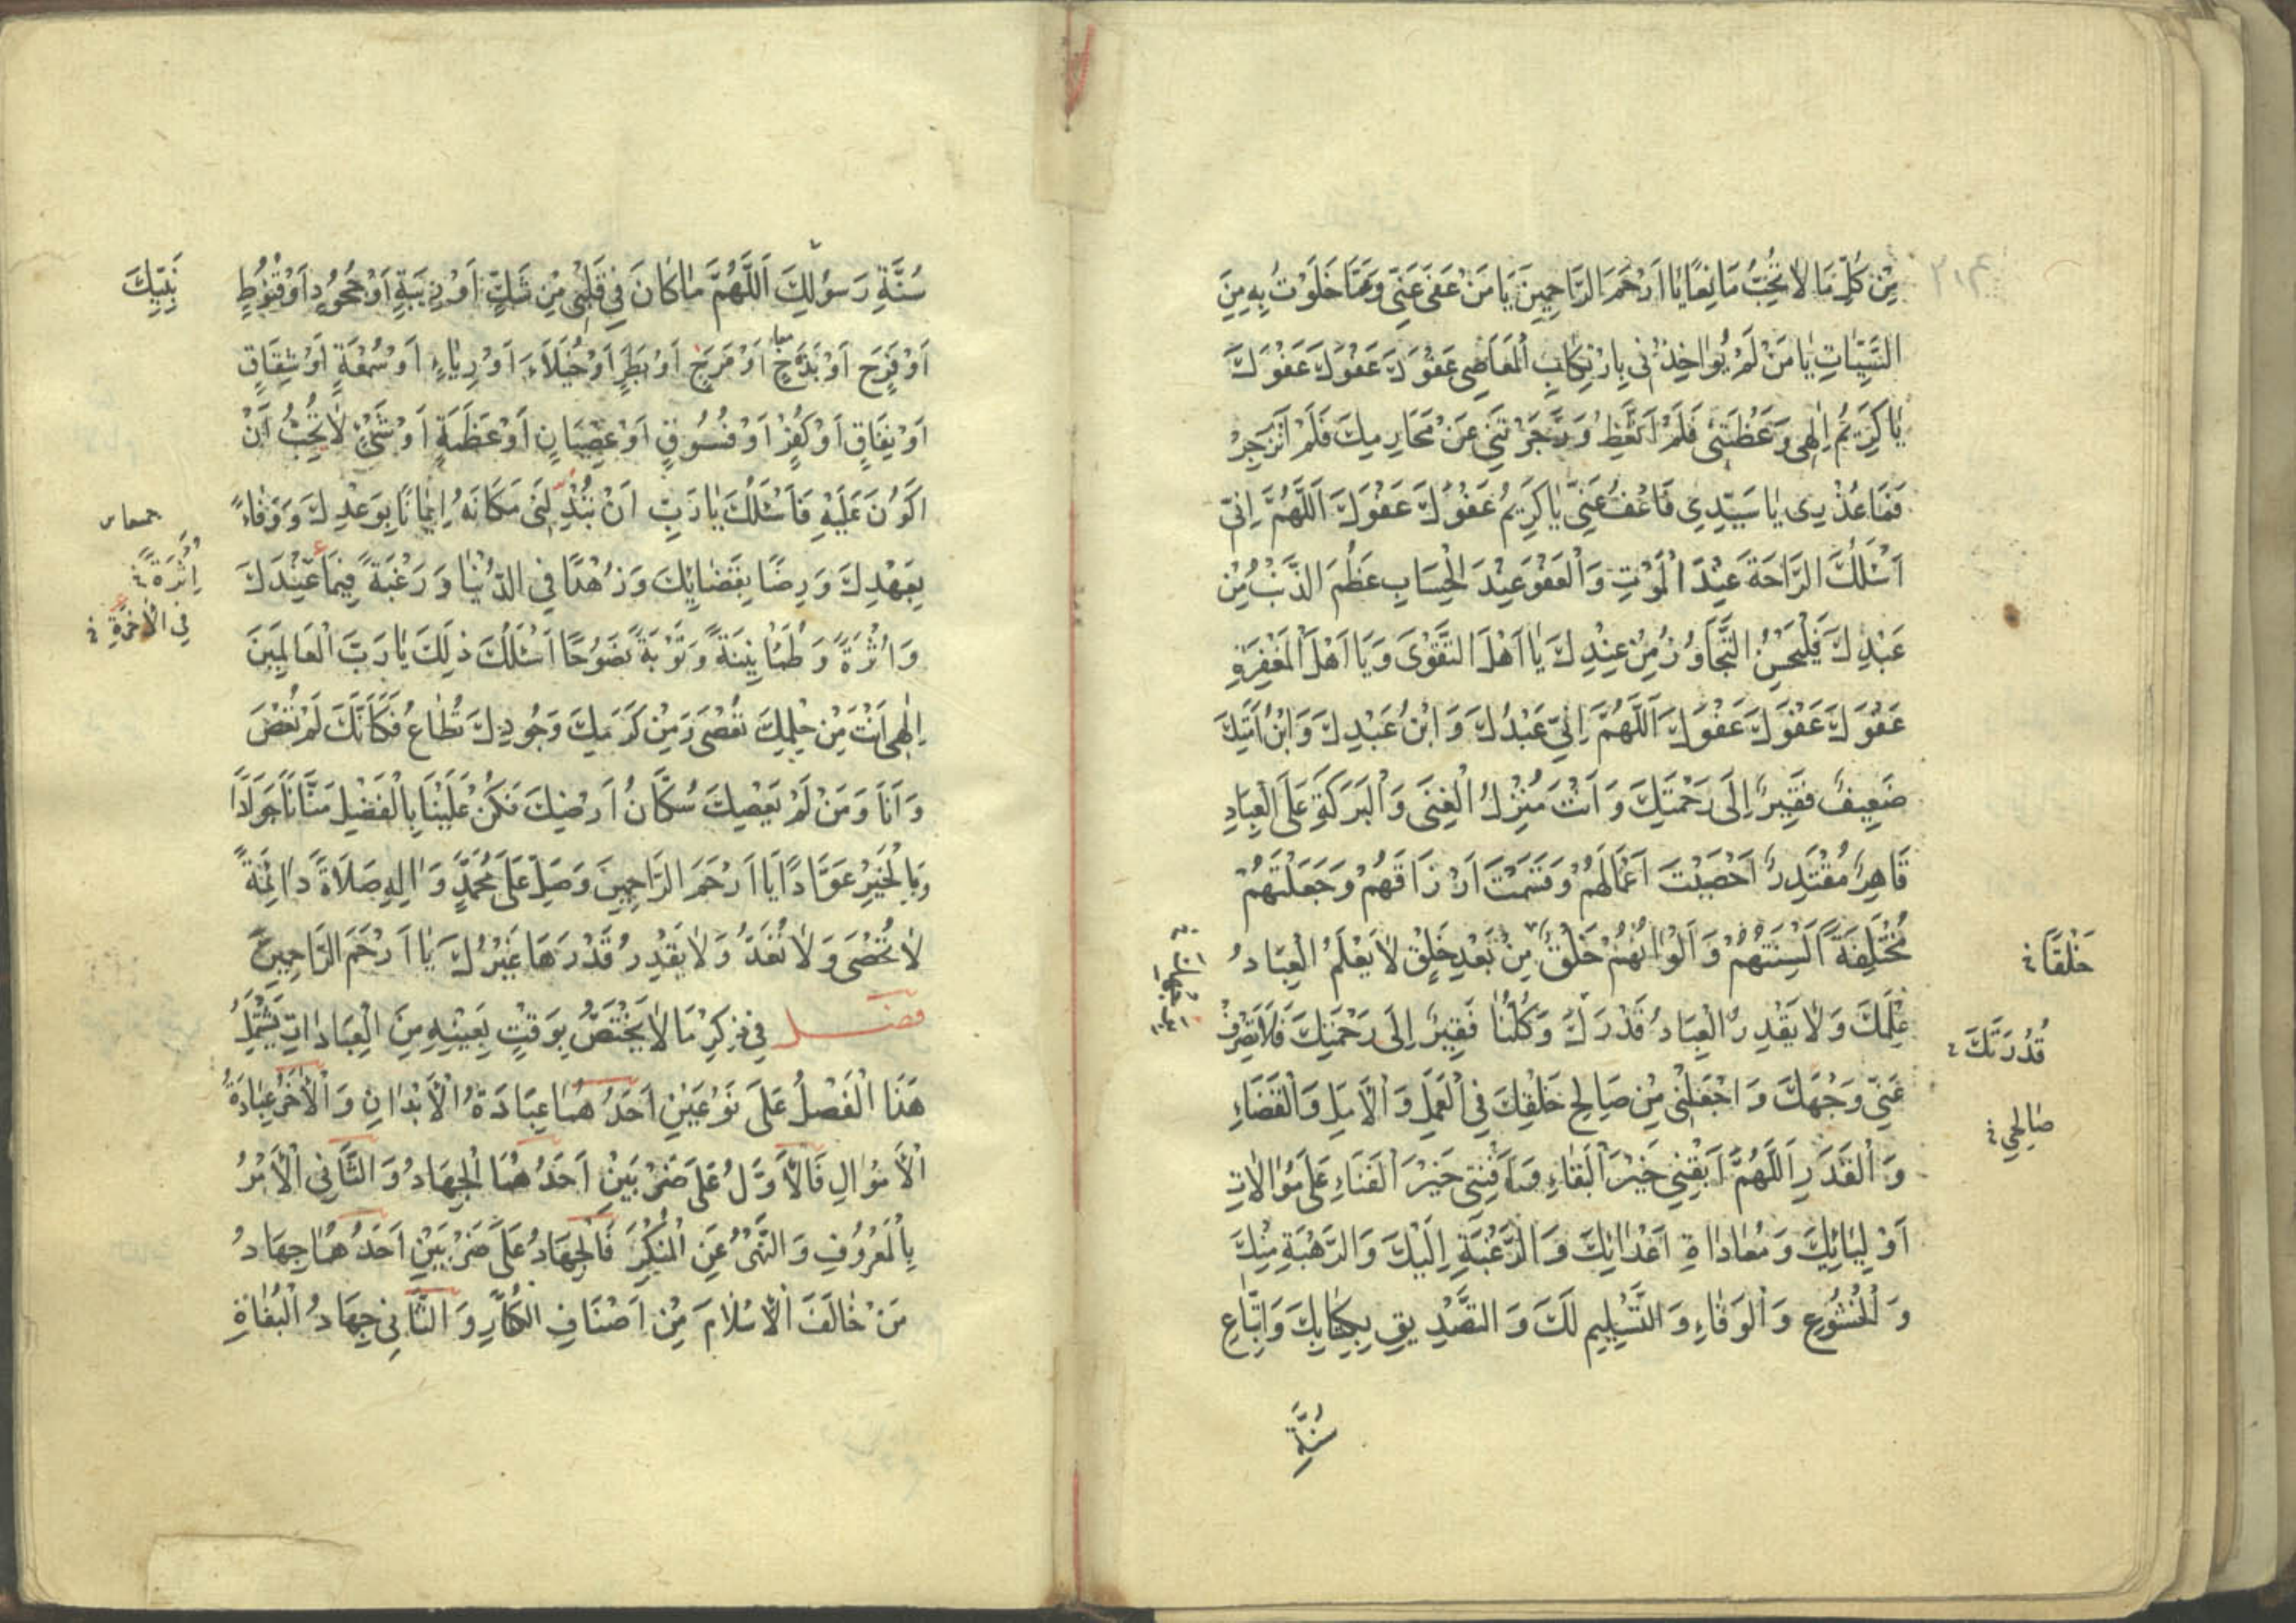 مِنْ كُلِّ مَا لَا تُحِبُّ مَانِعًا يَا اَرْحَمَ الرَّاحِمِينَ يَا مَنْ عَفَى عَنِّي وَعَمَّا خَلَوْتُ بِهِ مِنَ
السَّيِّئَاتِ يَا مَنْ لَمْ يُؤَاخِذْنِي بِارْتِكَابِ الْمَعَاصِي عَفْوَكَ عَفْوَكَ عَفْوَكَ
يَا كَرِيمُ اِلٰهِي وَعَظْتَنِي فَلَمْ اَتَّعِظْ وَزَجَرْتَنِي عَنْ مَحَارِمِكَ فَلَمْ اَنْزَجِرْ
فَمَا عُذْرِي يَا سَيِّدِي فَاعْفُ عَنِّي يَا كَرِيمُ عَفْوَكَ عَفْوَكَ اَللّٰهُمَّ اِنِّي
اَسْئَلُكَ الرَّاحَةَ عِنْدَ الْمَوْتِ وَالْعَفْوَ عِنْدَ الْحِسَابِ عَظُمَ الذَّنْبُ مِنْ
عَبْدِكَ فَلْيَحْسُنِ التَّجَاوُزُ مِنْ عِنْدِكَ يَا اَهْلَ التَّقْوَى وَيَا اَهْلَ الْمَغْفِرَةِ
عَفْوَكَ عَفْوَكَ عَفْوَكَ اَللّٰهُمَّ اِنِّي عَبْدُكَ وَابْنُ عَبْدِكَ وَابْنُ اَمَتِكَ
ضَعِيفٌ فَقِيرٌ اِلَى رَحْمَتِكَ وَاَنْتَ مُنْزِلُ الْغِنَى وَالْبَرَكَةِ عَلَى الْعِبَادِ
قَاهِرٌ مُقْتَدِرٌ اَحْصَيْتَ اَعْمَالَهُمْ وَقَسَمْتَ اَرْزَاقَهُمْ وَجَعَلْتَهُمْ
مُخْتَلِفَةً اَلْسِنَتُهُمْ وَاَلْوَانُهُمْ خَلْقٌ مِنْ بَعْدِ خَلْقٍ لَا يَعْلَمُ الْعِبَادُ
خَلْقًا
عِلْمَكَ وَلَا يَقْدِرُ الْعِبَادُ قَدْرَكَ وَكُلُّنَا فَقِيرٌ اِلَى رَحْمَتِكَ فَلَا تَصْرِفْ
قُدْرَتَكَ
عَنِّي وَجْهَكَ وَاجْعَلْنِي مِنْ صَالِحِ خَلْقِكَ فِي الْعَمَلِ وَالْاَمَلِ وَالْقَضَاءِ
صَالِحِي
وَالْقَدَرِ اَللّٰهُمَّ اَبْقِنِي خَيْرَ الْبَقَاءِ وَاَفْنِنِي خَيْرَ الْفَنَاءِ عَلَى مُوَالَاتِ
اَوْلِيَائِكَ وَمُعَادَاةِ اَعْدَائِكَ وَالرَّغْبَةِ اِلَيْكَ وَالرَّهْبَةِ مِنْكَ
وَالْخُشُوعِ وَالْوَفَاءِ وَالتَّسْلِيمِ لَكَ وَالتَّصْدِيقِ بِكِتَابِكَ وَاتِّبَاعِ
سُنَّةِ
سُنَّةِ رَسُولِكَ اَللّٰهُمَّ مَا كَانَ فِي قَلْبِي مِنْ شَكٍّ اَوْ رِيبَةٍ اَوْ جُحُودٍ اَوْ قُنُوطٍ
نَبِيِّكَ
اَوْ فَرَحٍ اَوْ بَذَخٍ اَوْ مَرَحٍ اَوْ بَطَرٍ اَوْ خُيَلَاءَ اَوْ رِيَاءٍ اَوْ سُمْعَةٍ اَوْ شِقَاقٍ
اَوْ نِفَاقٍ اَوْ كُفْرٍ اَوْ فُسُوقٍ اَوْ عِصْيَانٍ اَوْ عَظَمَةٍ اَوْ شَيْءٍ لَا تُحِبُّ اَنْ
اَكُونَ عَلَيْهِ فَاَسْئَلُكَ يَا رَبِّ اَنْ تُبَدِّلَنِي مَكَانَهُ اِيمَانًا بِوَعْدِكَ وَوَفَاءً
بِعَهْدِكَ وَرِضًا بِقَضَائِكَ وَزُهْدًا فِي الدُّنْيَا وَرَغْبَةً فِيمَا عِنْدَكَ
وَاَثَرَةً
فِي الْاٰخِرَةِ
وَاُثْرَةً وَطُمَأْنِينَةً وَتَوْبَةً نَصُوحًا اَسْئَلُكَ ذٰلِكَ يَا رَبَّ الْعَالَمِينَ
اِلٰهِي اَنْتَ مِنْ حِلْمِكَ تُعْصَى وَمِنْ كَرَمِكَ وَجُودِكَ تُطَاعُ فَكَاَنَّكَ لَمْ تُعْصَ
وَاَنَا وَمَنْ لَمْ يَعْصِكَ سُكَّانُ اَرْضِكَ فَكُنْ عَلَيْنَا بِالْفَضْلِ مَنَّانًا جَوَادًا
وَبِالْخَيْرِ عَوَّادًا يَا اَرْحَمَ الرَّاحِمِينَ وَصَلِّ عَلَى مُحَمَّدٍ وَاٰلِهِ صَلَاةً دَائِمَةً
لَا تُحْصَى وَلَا تُعَدُّ وَلَا يَقْدِرُ قَدْرَهَا غَيْرُكَ يَا اَرْحَمَ الرَّاحِمِينَ
فصل فِي ذِكْرِ مَا لَا يَخْتَصُّ بِوَقْتٍ بِعَيْنِهِ مِنَ الْعِبَادَاتِ يَشْتَمِلُ
هَذَا الْفَصْلُ عَلَى نَوْعَيْنِ اَحَدُهُمَا عِبَادَةُ الْاَبْدَانِ وَالْاٰخَرُ عِبَادَةُ
الْاَمْوَالِ فَالْاَوَّلُ عَلَى ضَرْبَيْنِ اَحَدُهُمَا الْجِهَادُ وَالثَّانِي الْاَمْرُ
بِالْمَعْرُوفِ وَالنَّهْيُ عَنِ الْمُنْكَرِ فَالْجِهَادُ عَلَى ضَرْبَيْنِ اَحَدُهُمَا جِهَادُ
مَنْ خَالَفَ الْاِسْلَامَ مِنْ اَصْنَافِ الْكُفَّارِ وَالثَّانِي جِهَادُ الْبُغَاةِ